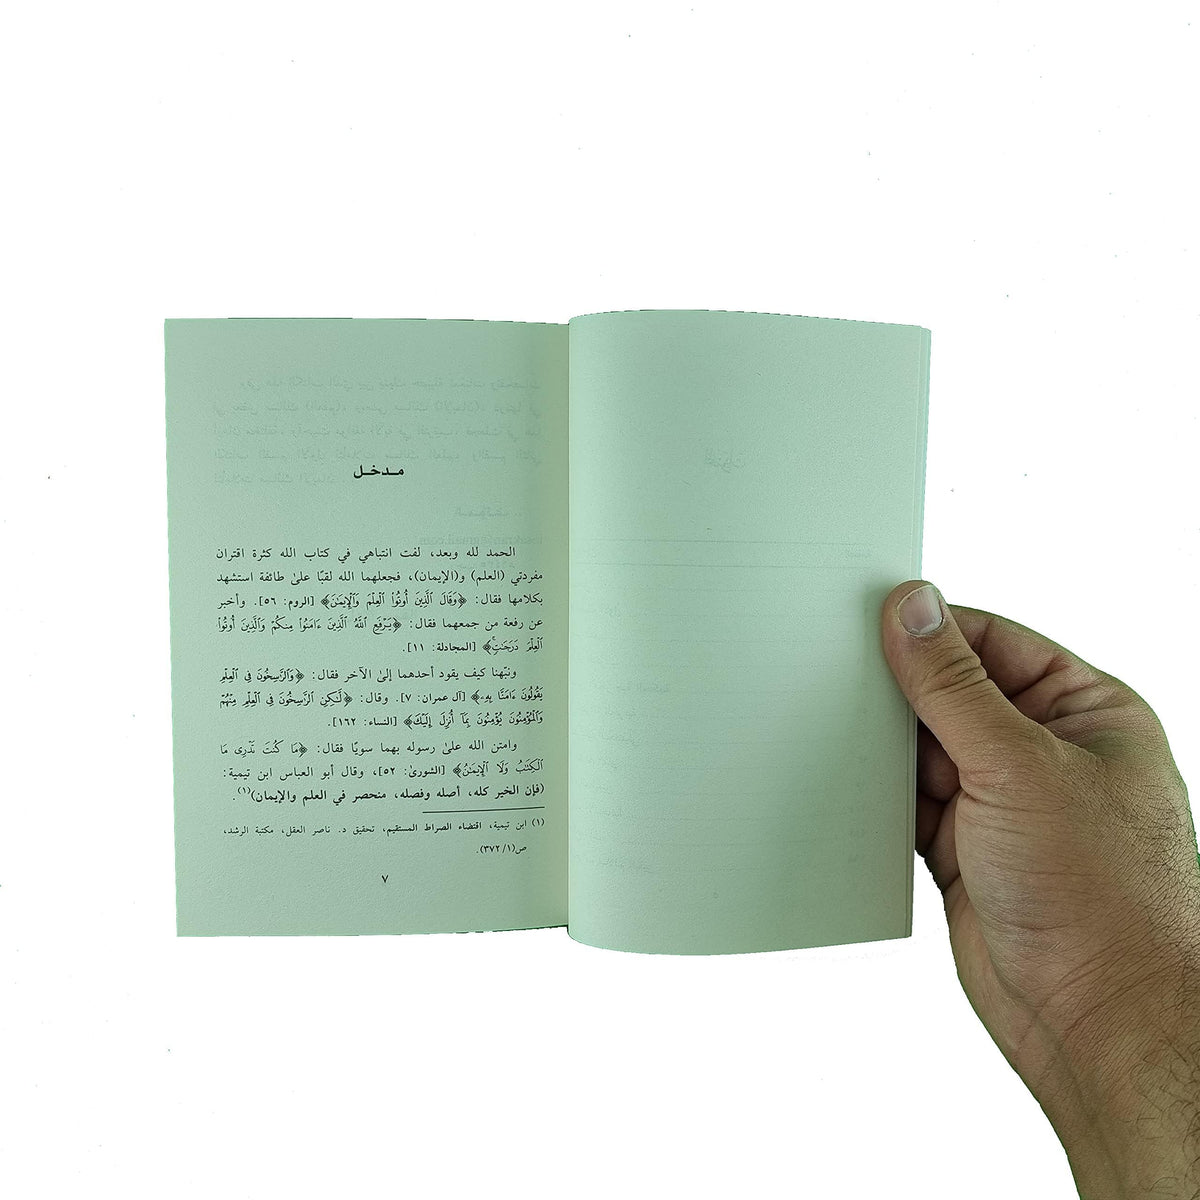 مـدخـل
الحمد لله وبعد، لفت انتباهي في كتاب الله كثرة اقتران
مفردتي (العلم) و(الإيمان)، فجعلهما الله لقبًا علىٰ طائفة استشهد
بكلامها فقال: ﴿وَقَالَ ٱلَّذِينَ أُوتُوا۟ ٱلۡعِلۡمَ وَٱلۡإِيمَـٰنَ﴾ [الروم: ٥٦]. وأخبر
عن رفعة من جمعهما فقال: ﴿يَرۡفَعِ ٱللَّهُ ٱلَّذِينَ ءَامَنُوا۟ مِنكُمۡ وَٱلَّذِينَ أُوتُوا۟
ٱلۡعِلۡمَ دَرَجَـٰتٍۚ﴾ [المجادلة: ١١].
ونبّهنا كيف يقود أحدهما إلىٰ الآخر فقال: ﴿وَٱلرَّٰسِخُونَ فِي ٱلۡعِلۡمِ
يَقُولُونَ ءَامَنَّا بِهِۦ﴾ [آل عمران: ٧]. وقال: ﴿لَّـٰكِنِ ٱلرَّٰسِخُونَ فِي ٱلۡعِلۡمِ مِنۡهُمۡ
وَٱلۡمُؤۡمِنُونَ يُؤۡمِنُونَ بِمَآ أُنزِلَ إِلَيۡكَ﴾ [النساء: ١٦٢].
وامتن الله علىٰ رسوله بهما سويًا فقال: ﴿مَا كُنتَ تَدۡرِي مَا
ٱلۡكِتَـٰبُ وَلَا ٱلۡإِيمَـٰنُ﴾ [الشورىٰ: ٥٢]، وقال أبو العباس ابن تيمية:
(فإن الخير كله، أصله وفصله، منحصر في العلم والإيمان)(١).
(١) ابن تيمية، اقتضاء الصراط المستقيم، تحقيق د. ناصر العقل، مكتبة الرشد،
ص(١/ ٣٧٢).
٧